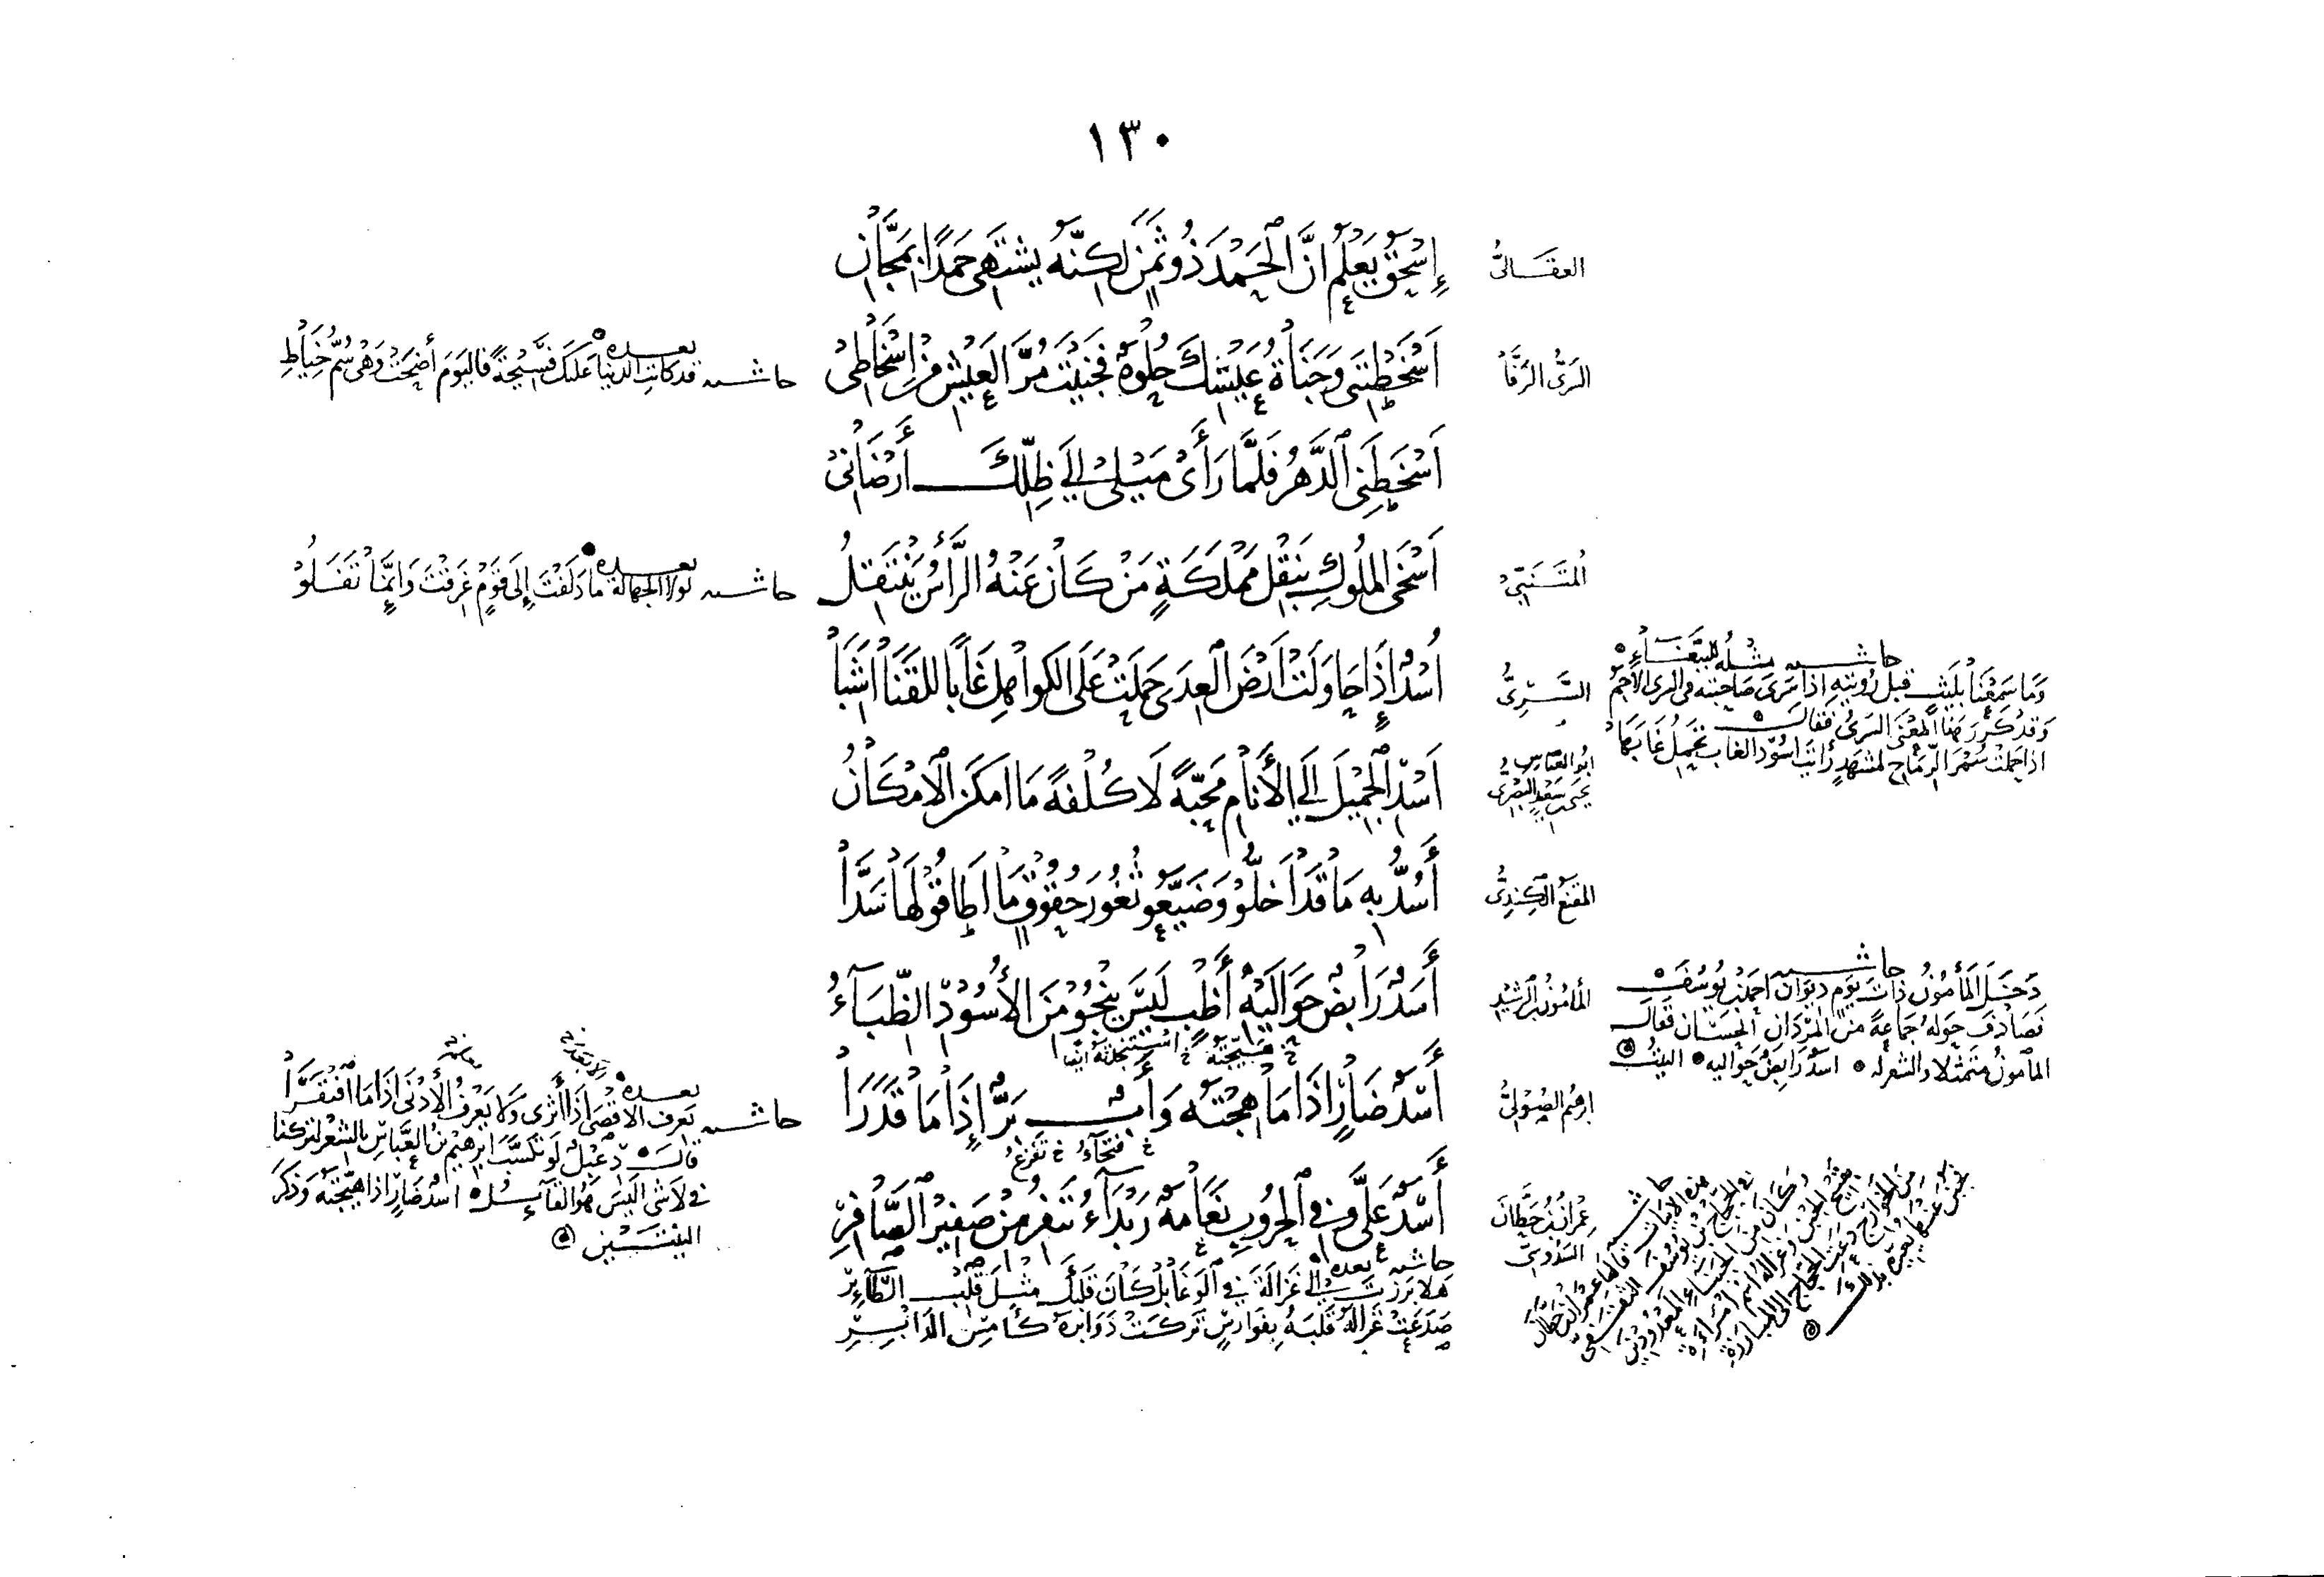 ١٣٠
إِسْحَقُ يَعْلَمُ انَّ الْحَمْدَ ذُو ثَمَنٍ لَكِنَّهُ يَشْتَهِى حَمْدًا بِمَجَّانِ
السَّرِىُّ الرَّفَّاءُ
اَسْخَطْتَنِى وَجَنَاةُ عَيْشِكَ حُلْوَةٌ فَجَنَيْتَ مُرَّ الْعَيْشِ مِنْ اِسْخَاطِى
حاشيه بعده
قد كانت الدنيا عليك فسيحةً فاليوم أضحت وهى سم خياط
اَسْخَطَنِى الدَّهْرُ فَلَمَّا رَأَىْ مَيْلِىْ اِلَى ظِلِّكَ أَرْضَانِىْ
المتنبى
اَسْخَى الملُوكِ بِنَقْلِ مَمْلَكَةٍ مَنْ كَانَ عَنْهُ الرَّأْسُ يَنْتَقِلُ
حاشيه بعده
لولا الجهالة ما دلفت إلى قوم غرقت وانما تفلوا
السَّرِىُّ
اُسْدٌ اِذَا حَاوَلَتْ اَرْضَ الْعِدَى حَمَلَتْ عَلَى الكَوَاهِلِ غَابًا للقَنَا اَشَبَا
حاشيه مثله للببغاء
وما سمعنا بليث قبل رؤيته اذا سرى صاحبته فى السرى الأجم
وقد كرر هذا المعنى السرى فقال
اذا حملت سمر الرماح لمشهد رأيت اسود الغاب تحمل غابها
ابو العباس
يحيى بن سعيد البصرى
اَسْدِ الْجَمِيْلَ اِلَى الأَنَامِ مَحَبَّةً لَا كُلْفَةً مَا امْكَنَ الْاِمْكَانُ
المقنع الكندى
أَسُدُّ بِهِ مَا قَدْ اَخَلُّوْ وَضَيَّعُو ثُغُورَ حُقُوقٍ مَا اَطَاقُوْ لَهَا سَدَّا
المأمون بن الرشيد
أَسَدٌ رَابِضٌ حَوَالَيْهِ أَظْبٍ لَيْسَ يَنْجُوْ مِنَ الأُسُوْدِ الظِّبَآءُ
حاشيه
دخل المأمون ذات يوم ديوان احمد بن يوسف
فصادف حوله جماعة من المردان الحسان فقال
المأمون متمثلا والشعر له اسد رابض حواليه البيت
ابرهيم الصولى
أَسَدٌ ضَارٍ اِذَا مَا هِجْتَهُ وَأَبٌ بَرٌّ إِذَا مَا قَدَرَا
حاشيه بعده
يعرف الاقصى اذا أثرى ولا يعرف الأدنى اذا ما افتقرا
قال دعبل لو تكسب ابرهيم بن العباس بالشعر لتركنا
فى لا شى اليس هو القائل اسد ضار اذا هيجته وذكر
البيتين
عمران بن حطان
السدوسى
أَسَدٌ عَلَىَّ وَفِى الْحُرُوبِ نَعَامَةٌ رَبْدَآءُ تَنْفِرُ مِنْ صَفِيْرِ الصَّافِرِ
حاشيه بعده
هلا برزت الى غزالة فى الوغا بل كان قلبك مثل قلب الطائر
صدعت غزالة قلبه بفوارس تركت دوابره كأمس الدابر
حاشيه
هذه الابيات قالها عمران بن حطان
فى الحجاج بن يوسف الثقفى